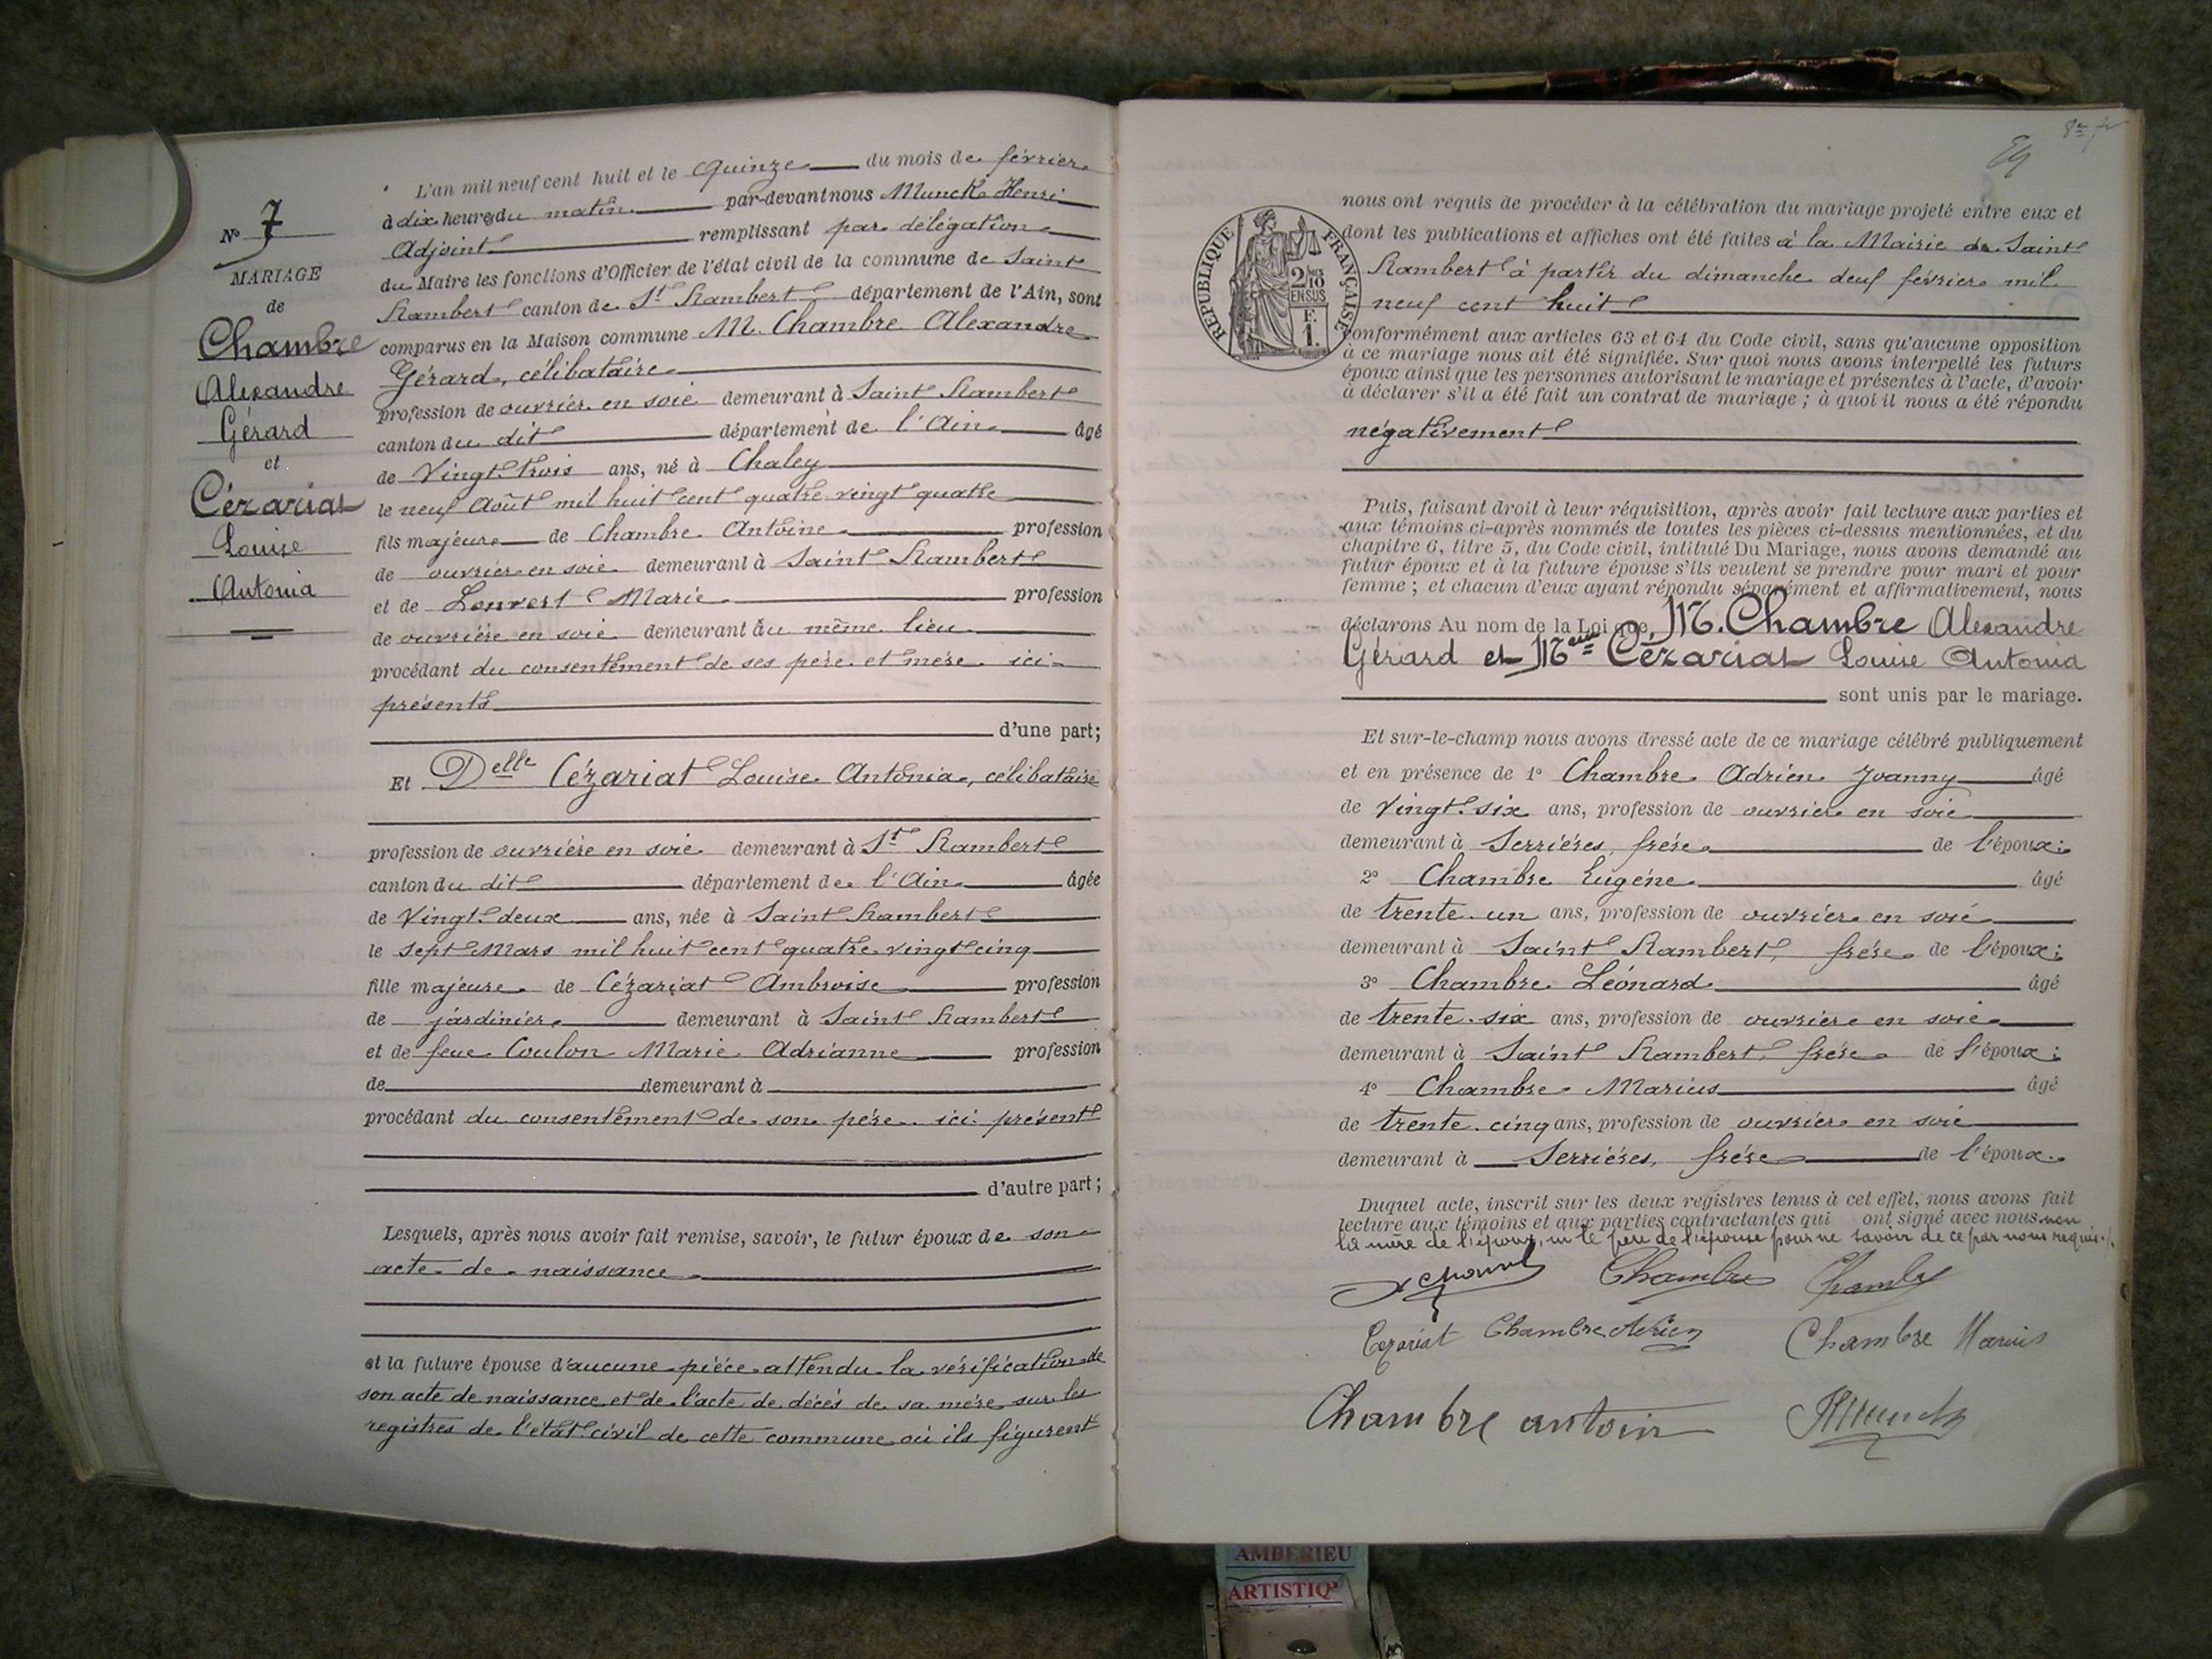 N° 7
MARIAGE
de
Chambre
Alexandre
Gérard
et
Cézariat
Louise
Antonia
L'an mil neuf cent huit et le Quinze du mois de février
à dix heures du matin par-devant nous Munck Henri
Adjoint remplissant par délégation
du Maire les fonctions d'Officier de l'état civil de la commune de Saint
Rambert canton de St Rambert département de l'Ain, sont
comparus en la Maison commune M. Chambre Alexandre
Gérard, célibataire
profession de ouvrier en soie demeurant à Saint Rambert
canton du dit département de l'Ain âgé
de Vingt trois ans, né à Chaley
le neuf Août mil huit cent quatre vingt quatre
fils majeur de Chambre Antoine profession
de ouvrier en soie demeurant à Saint Rambert
et de Louvert Marie profession
de ouvrière en soie demeurant au même lieu
procédant du consentement de ses père et mère ici
présents
d'une part;
Et Delle Cézariat Louise Antonia, célibataire
profession de ouvrière en soie demeurant à St Rambert
canton du dit département de l'Ain âgée
de Vingt deux ans, née à Saint Rambert
le Sept Mars mil huit cent quatre vingt cinq
fille majeure de Cézariat Ambroise profession
de jardinier demeurant à Saint Rambert
et de feue Coulon Marie Adrianne profession
de demeurant à
procédant du consentement de son père ici présent
d'autre part;
Lesquels, après nous avoir fait remise, savoir, le futur époux de son
acte de naissance
et la future épouse d'aucune pièce attendu la vérification de
son acte de naissance et de l'acte de décès de sa mère sur les
registres de l'état civil de cette commune où ils figurent
nous ont requis de procéder à la célébration du mariage projeté entre eux et
dont les publications et affiches ont été faites à la Mairie de Saint
Rambert à partir du dimanche deuf février mil
neuf cent huit
RÉPUBLIQUE FRANÇAISE
2/10
EN SUS
F.
1.
conformément aux articles 63 et 64 du Code civil, sans qu'aucune opposition
à ce mariage nous ait été signifiée. Sur quoi nous avons interpellé les futurs
époux ainsi que les personnes autorisant le mariage et présentes à l'acte, d'avoir
à déclarer s'il a été fait un contrat de mariage ; à quoi il nous a été répondu
négativement
Puis, faisant droit à leur réquisition, après avoir fait lecture aux parties et
aux témoins ci-après nommés de toutes les pièces ci-dessus mentionnées, et du
chapitre 6, titre 5, du Code civil, intitulé Du Mariage, nous avons demandé au
futur époux et à la future épouse s'ils veulent se prendre pour mari et pour
femme ; et chacun d'eux ayant répondu séparément et affirmativement, nous
déclarons Au nom de la Loi que, M. Chambre Alexandre
Gérard et Melle Cézariat Louise Antonia
sont unis par le mariage.
Et sur-le-champ nous avons dressé acte de ce mariage célébré publiquement
et en présence de 1° Chambre Adrien Joanny âgé
de Vingt-six ans, profession de ouvrier en soie
demeurant à Serrières, frère de l'époux;
2° Chambre Eugène âgé
de trente un ans, profession de ouvrier en soie
demeurant à Saint Rambert, frère de l'époux;
3° Chambre Léonard âgé
de trente-six ans, profession de ouvrier en soie
demeurant à Saint Rambert, frère de l'époux;
4° Chambre Marius âgé
de trente-cinq ans, profession de ouvrier en soie
demeurant à Serrières, frère de l'époux.
Duquel acte, inscrit sur les deux registres tenus à cet effet, nous avons fait
lecture aux témoins et aux parties contractantes qui ont signé avec nous non
la mère de l'époux, ni le père de l'épouse pour ne savoir de ce par nous requis
Chambre
Chambre
Cezariat
Chambre Adrien
Chambre Marius
Chambre antoin
HMunck
AMBERIEU
ARTISTIQ